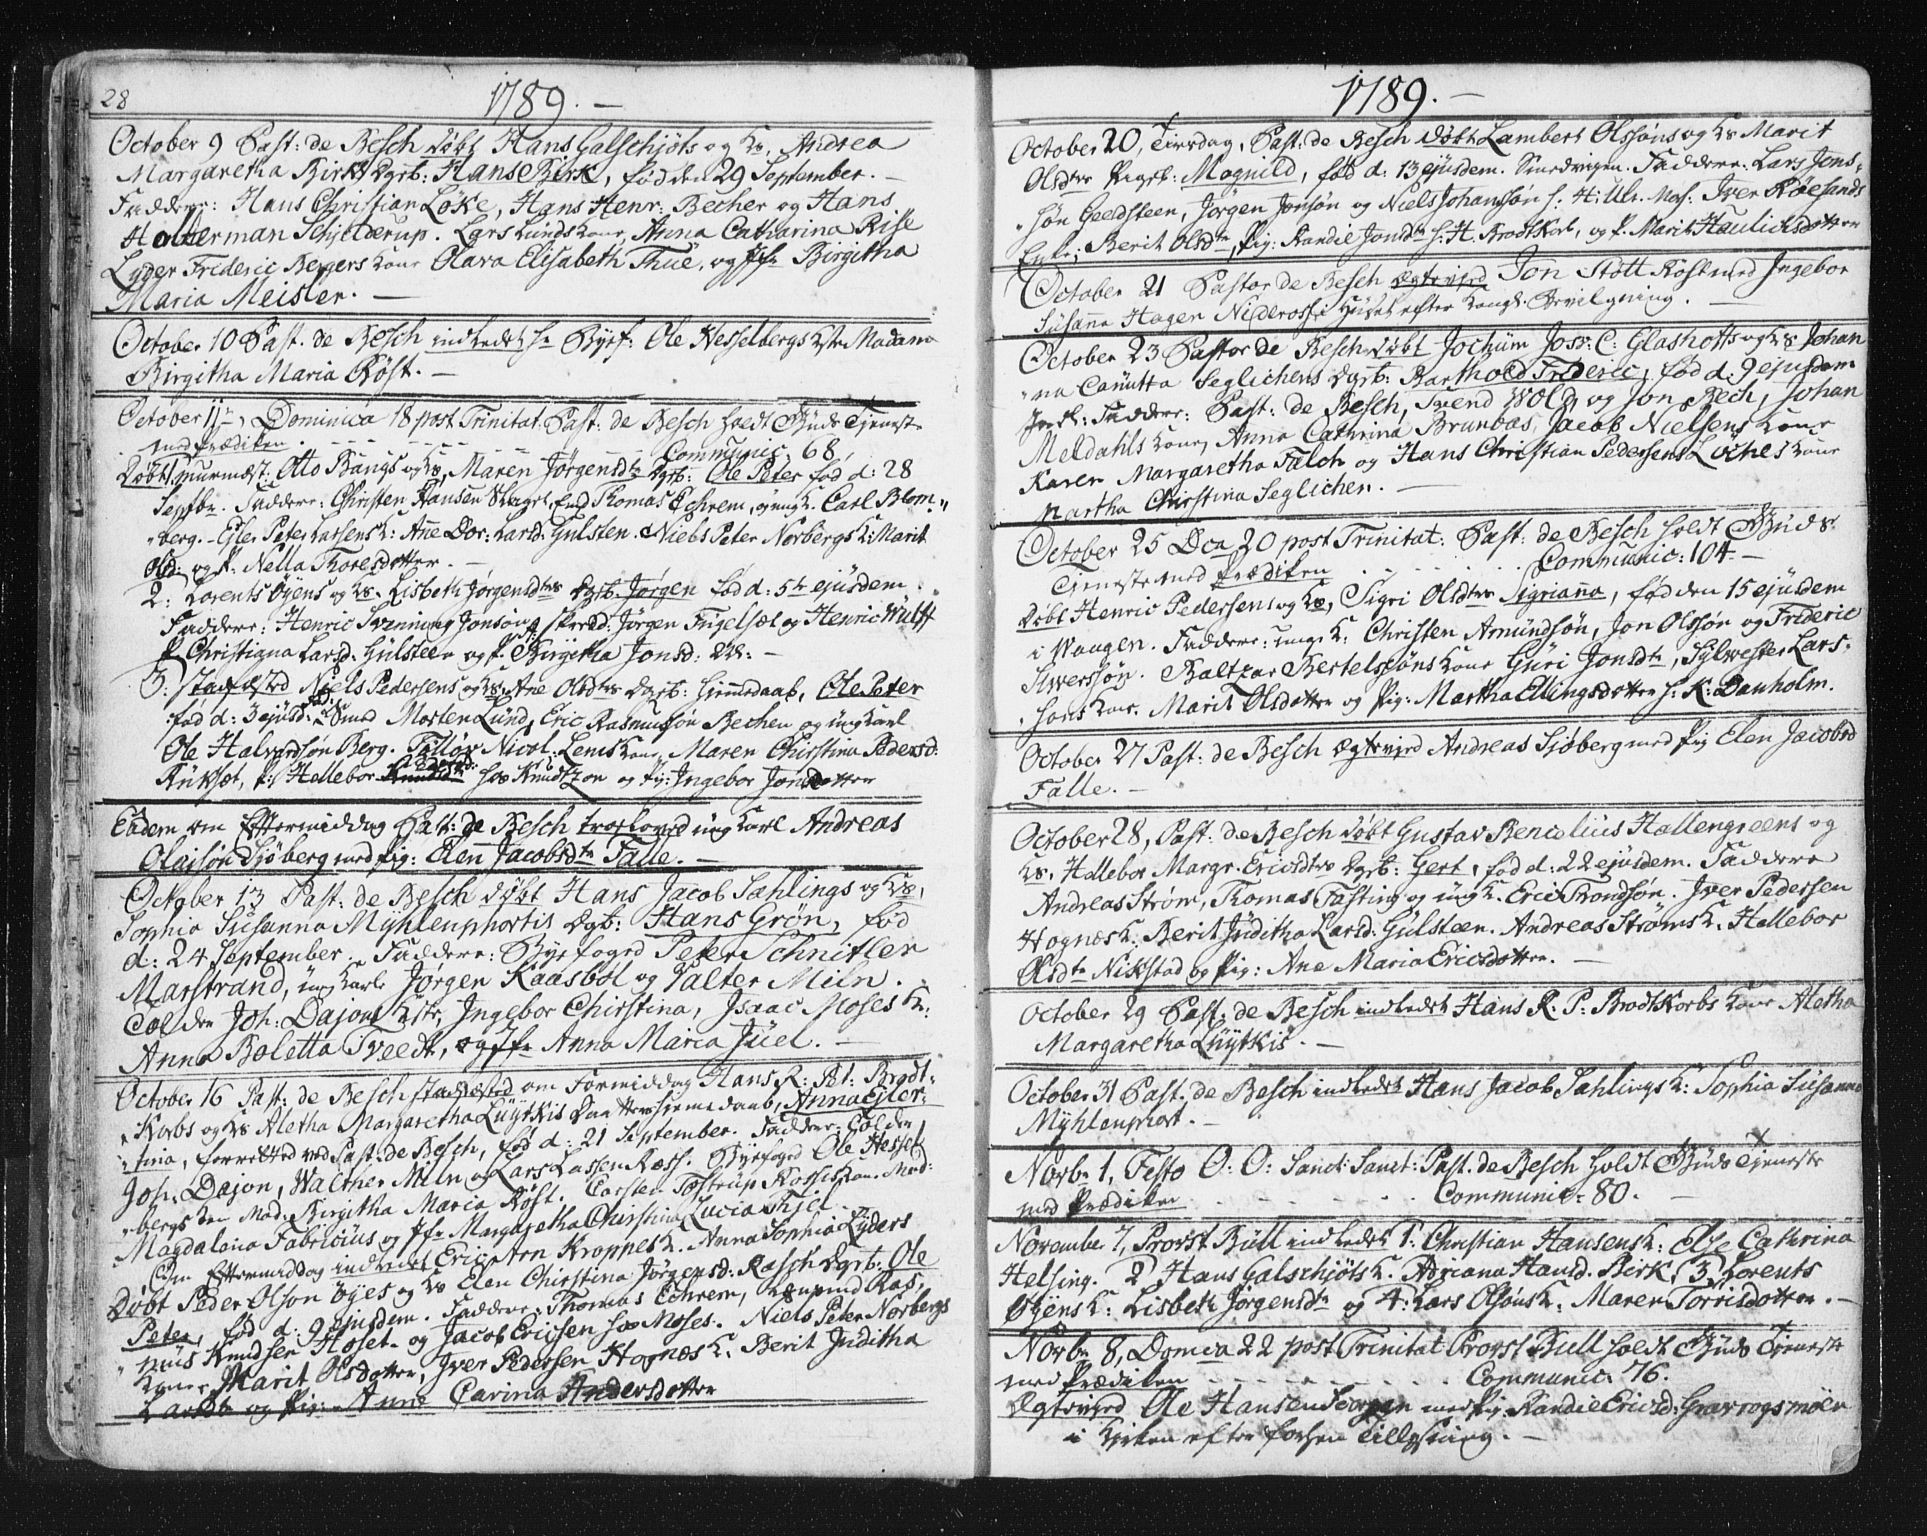 28
1789. —
October 9 Past: de Besch döbt Hans Galschjöts og Ks, Andrea
Margaretha Birks dgrb: Hans Birk, fød den 29 September. —
Faddere: Hans Christian Löke, Hans Henr: Becher og Hans
Holterman Schjelderup. Lars Lunds Kone, Anna Catharina Risse
Lyder Frideric Begers Kone Olava Elisabeth Thue, og Jfr Birgitha
Maria Meisler. —
October 10 Past. de Besch indledet hr Byef: Ole Hesselbergs Kste Madame
Birgitha Maria Röst. —
October 11te, Dominica 18 post Trinitat. Past: de Besch holdt Guds Tjeneste
med Prædiken . - - - - - Communic: 68,
Döbt, 1. muurmest: Otto Bangs og Ks, Maren Jörgensdtr dgrb: Ole Peter fød d: 28
Septbr. Faddere: Christen Hansen Thomas Echrem, og ungk. Carl Blom-
"berg. - Peter Larsens K: Ane Dor: Larsd: Gulsten. Niels Peter Norbergs K: Marit
Olsd: og P: Nella Thoresdotter. —
2: Lorents Öyens og Ks. Lisbeth Jörgensdtrs dgrb. Jörgen fød d: 5te ejusdem
Faddere: Henric Svinning Jonsön, Jörgen Fugelsæt og Henric Wulff
P. Christiana Larsd. Gulsteen og P. Birgitha Jonsd: —
3: stadfæsted Niels Pedersens og Ks, Ane Olsdtrs dgrb: hjemedaab, Ole Peter
fød d: 3 ejusd: Smed Morten Lund, Eric Rasmusön Bechen og ung Karl
Ole Halvardsön Berg. Nicol: Lems Kone, Maren Christina Pedersd:
Rikset, P: Hallebor hos Knudtzon og Pig: Ingebor Jonsdotter
Eadem om Eftermiddag Past: de Besch troeloved ung Karl Andreas
Olaisön Sjöberg med Pig: Elen Jacobsdtr Falle. —
October 13 Past: de Besch döbt Hans Jacob Sahlings og Ks,
Sophia Susanna Myhlenphortis dgb: Hans Grön, fød
d: 24 September. Faddere: Byefoged Peter Schnitler
Marstrand, ung Karle Jörgen Kaasböl og Valter Miln.
Colden Joh: Dajons Kste, Ingebor Christina, Isaac Moses K:
Anna Boletta Tveedt, og Jfr Anna Maria Juel. —
October 16 Past: de Besch stadfæsted om Formiddag Hans R: Pet: Brodt-
"Korbs og Ks Aletha Margaretha Luytkis Daatters hiemedaab, Anna Ejler-
"tina, forrettet ved Past. de Besch, fød d: 21 September. Faddere: Colden
Joh. Dajon, Walther Miln og Lars Lassen Ræss. Byefoged Ole Hessel-
"bergs Kone Mad. Birgitha Maria Röst. Carsten Tostrup Rosses Kone. Mad:
Magdalena Fabricius og Jfr Margaretha Christina Lucia Thjel
Om Eftermiddag indledet Eric Arn Kroppes K. Anna Sophia Lyders
Döbt Peder Olson Öyes og Ks Elen Christina Jörgensd: Rasch dgrb: Ole
Peter, fød d: 9 ejusdem. Faddere: Thomas Echrem, Ras-
"mus Knudsen Hoset. og Jacob Ericsen hos Moses. Niels Peter Norbergs
Kone Marit Olsdotter, Iver Pedersen Hognæs K. Berit Juditha
Larsdtr og Pig: Anne Carina Andersdotter
1789. —
October 20, Tirsdag, Past: de Besch döbt Lambert Olssöns og Ks Marit
Olsdtrs Pigeb: Magnild, fød d: 13 ejusdem. Smedvigen. Faddere. Lars Jens-
"sön Geedsteen, Jörgen Jonsön og Niels Johansön h. H: Ulr. Mos: Iver Röesands
Enke: Berit Olsdtr, Pig: Randie Jonsdtr h. H. Brodtkorb, og P. Marit Haulichsdotter
October 21 Pastor de Besch ægtevied Jon Stött Rost med Ingebor
Susanna Hagen Nideros i Huset efter Kongl: Bevilgning. —
October 23 Pastor de Besch döbt Jochum Jos: C: Glashoffs og Ks Johan
"na Canutta Seglichens dgrb: Barthold Frideric, fød d: 9 ejusdem
Faddere: Past: de Besch, Svend Wold, og Jon Bech, Johan
Meldahls Kone, Anna Cathrina Brunboas, Jacob Nielsens Kone
Karen Margaretha Falch og Hans Christian Pedersens Löches Kone
Martha Christina Seglichen. —
October 25 Dca 20 post Trinitat: Past: de Besch holdt Guds
Tjeneste med Prædiken . . . . . . Communic: 104. —
Döbt Henric Pedersens og Ks, Sigri Olsdtrs Sigrianna, fød den 15 ejusdem
i Waagen. Faddere: ung K. Christen Amundsön, Jon Olssön og Frideric
Siwersön. Baltzar Bertelssöns Kone Guri Jonsdtr, Sylwester Lars-
"söns Kone. Marit Olsdotter og Pig: Martha Ellingsdotter h. K: Danholm.
October 27 Past: de Besch ægtevied Andreas Sjöberg med Pig Elen Jacobsd
Falle. —
October 28, Past: de Besch döbt Gustav Bencelius Hallengreens og
Ks. Hallebor Margr. Ericsdtrs dgrb: Gert, fød d: 22 ejusdem. Faddere
Andreas Ström, Thomas Fasting og ung K. Eric Trondsön. Iver Pedersen
Hognæs K. Berit Juditha Larsd: Gulsteen. Andreas Ströms K. Hallebor
Olsdtr Nikstad og Pig: Ane Maria Ericsdotter. —
October 29 Past. de Besch indledet Hans R. P: Brodtkorbs Kone Aletha
Margaretha Luytkis. —
October 31 Past. de Besch indledet Hans Jacob Sahlings K: Sophia Susanna
Myhlenphort. —
Novbr 1, Festo O: O: Sanct: Sanct: Past. de Besch holdt Guds Tjeneste
med Prædiken - - - - - Communic: 80. —
November 7, Provst Bull indledet 1: Christian Hansens K: Else Cathrina
Helsing. 2 Hans Galschjöts K. Adriana Hansd. Birk, 3, Lorents
Öyens K: Lisbeth Jörgensdtr og 4: Lars Olsöns K: Maren Torrisdotter. —
Novbr 8, Domca 22 post Trinitat Provst Bull holdt Guds Tjeneste
med Prædiken - - - - - Communic: 76.
Ægtevied Ole Hansen med Pig. Randie Ericsd: Gravrogsmöen
i Kirken efter forhen Tillysning. —